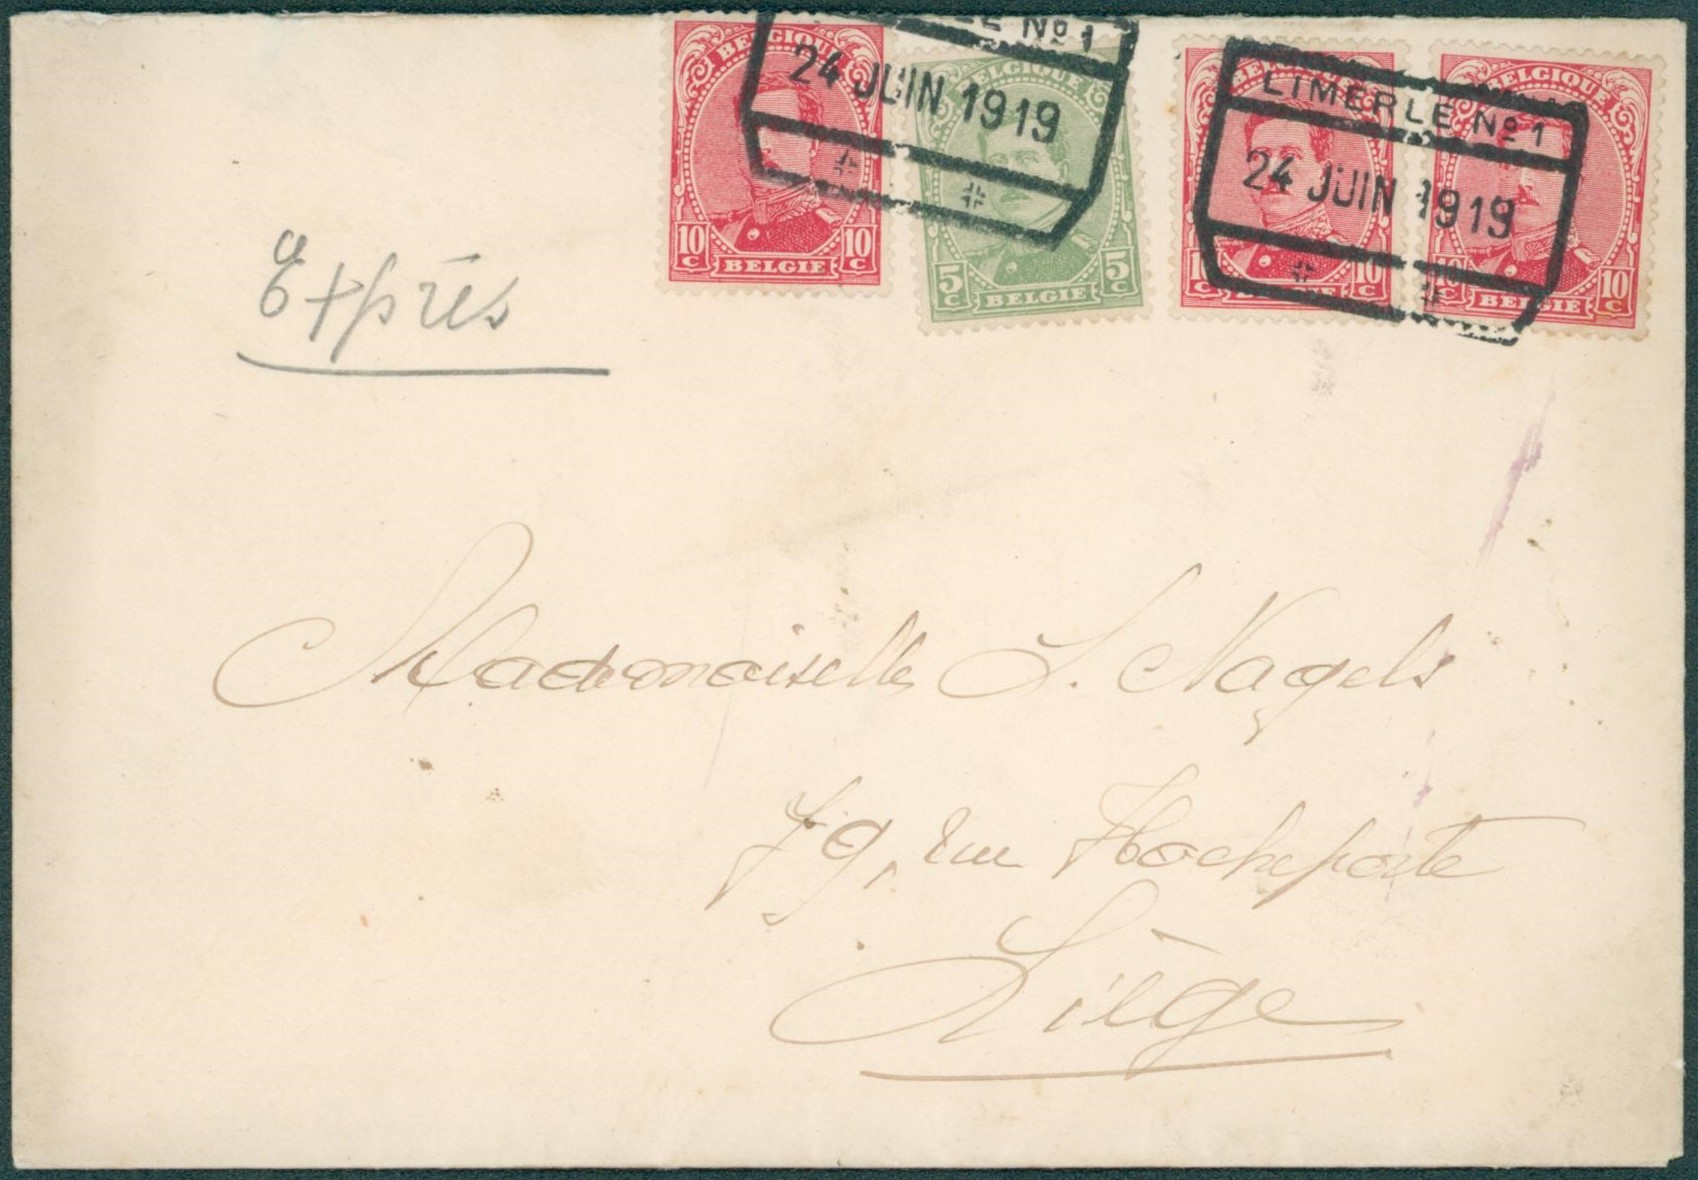 LE No 1
24 JUIN 1919
BELGIQUE
10 C 10 C
BELGIE
BELGIQUE
5 C 5 C
BELGIE
LIMERLE No 1
24 JUIN 1919
BELGIQUE
10 C
BELGIE
BELGIQUE
10 10 C
BELGIE
Exprès
Mademoiselle S. Nagels
79, rue Hocheporte
Liège